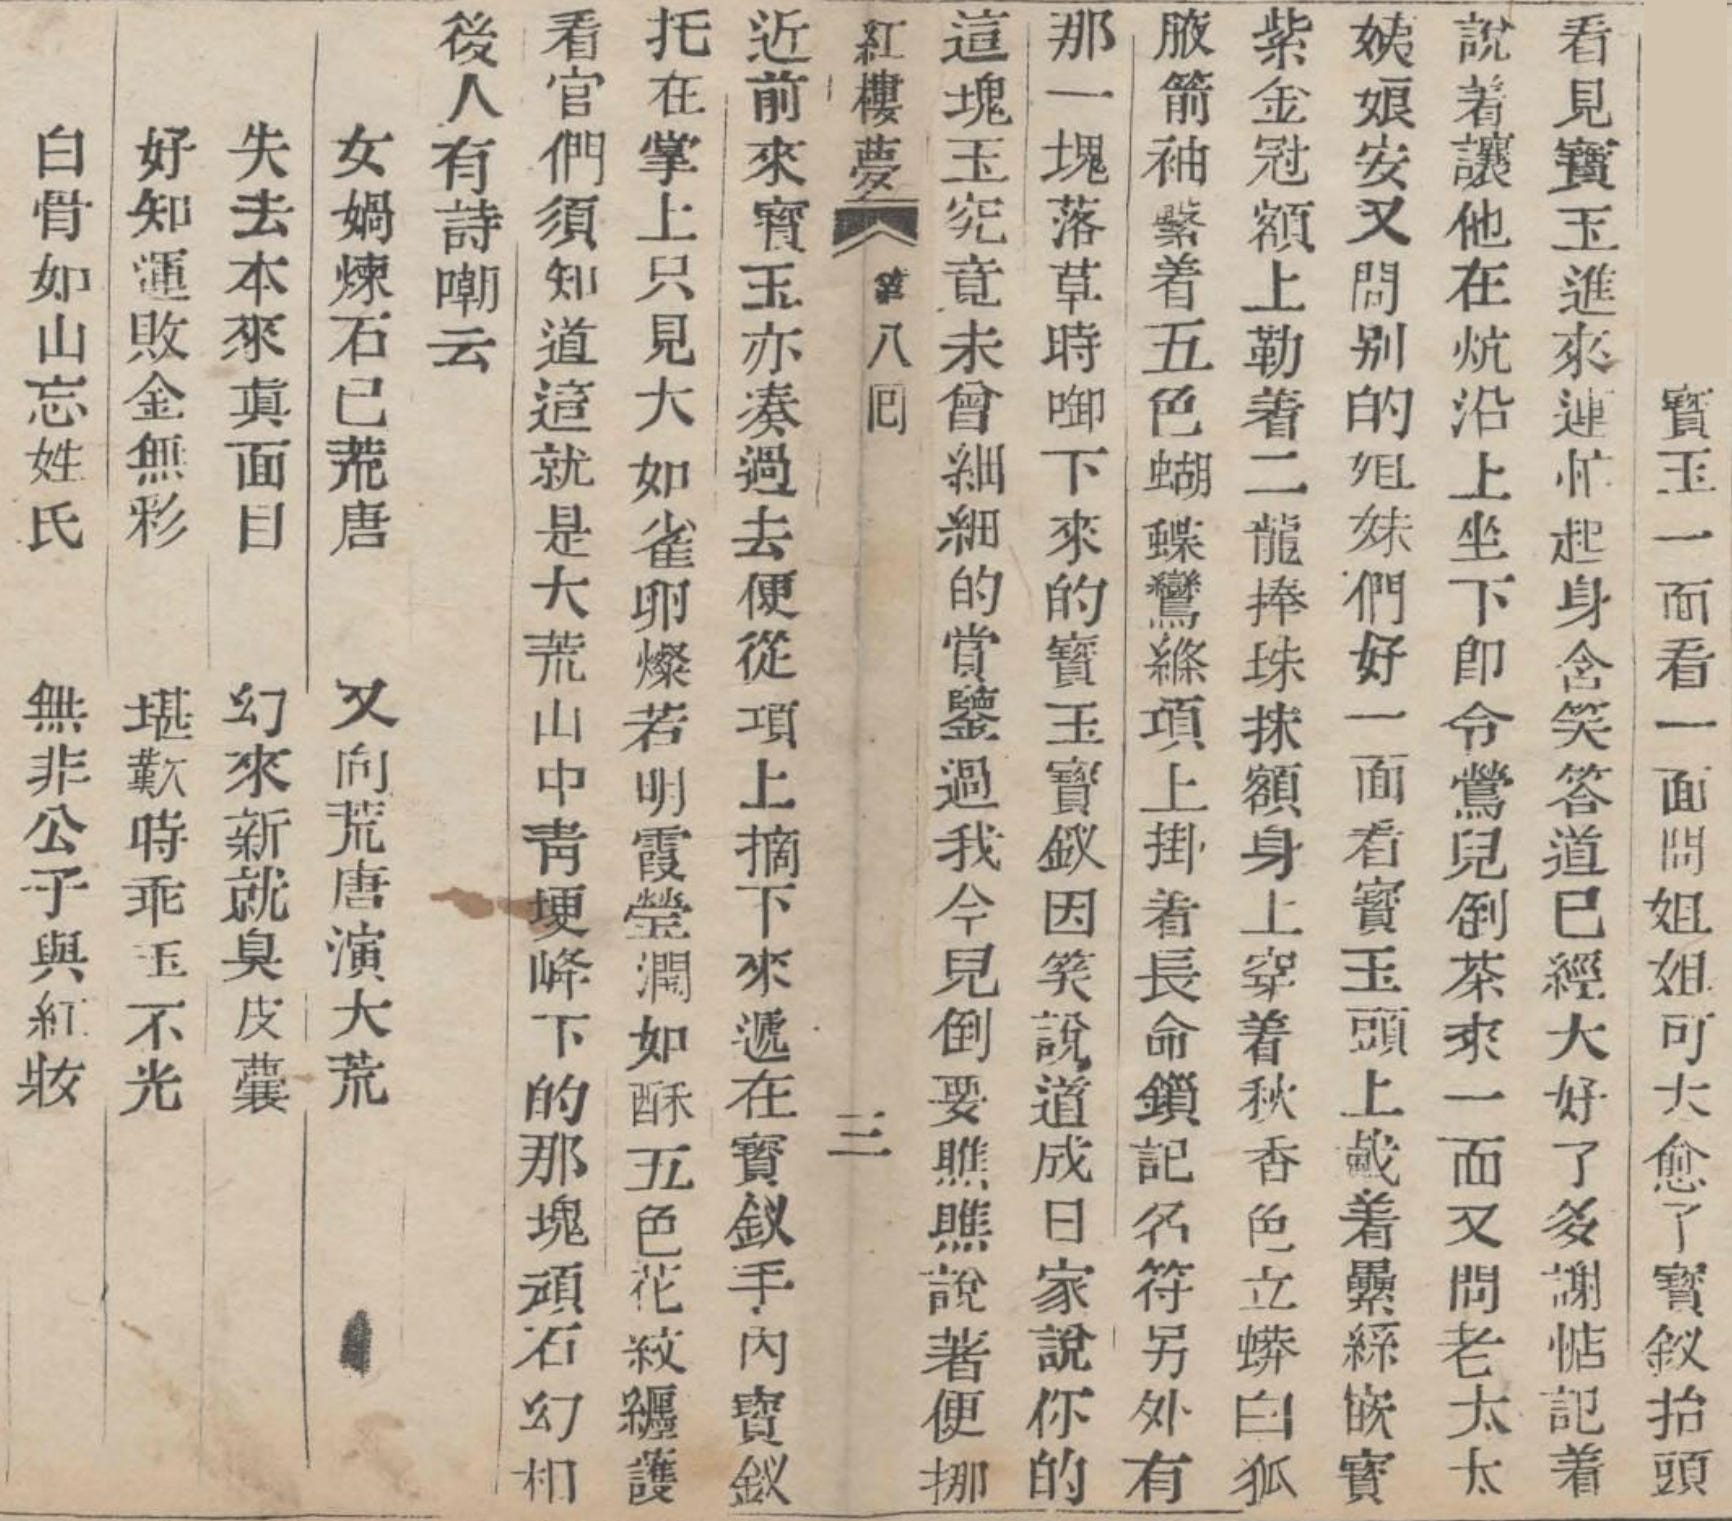 寳玉一面看一面問姐姐可大愈了寳釵抬頭
看見寳玉進來連忙起身含笑答道已經大好了多謝惦記着
說着讓他在炕沿上坐下卽令鶯兒倒茶來一面又問老太太
姨娘安又問别的姐妹們好一面看寳玉頭上戴着纍絲嵌寳
紫金冠額上勒着二龍捧珠抹額身上穿着秋香色立蟒白狐
腋箭袖繫着五色蝴蝶鸞縧項上掛着長命鎖記名符另外有
那一塊落草時啣下來的寳玉寳釵因笑說道成日家說你的
這塊玉究竟未曾細細的賞鑒過我今兒倒要瞧瞧說著便挪
紅樓夢 第八囘 三
近前來寳玉亦凑過去便從項上摘下來遞在寳釵手內寳釵
托在掌上只見大如雀卵燦若明霞瑩潤如酥五色花紋纏護
看官們須知道這就是大荒山中靑埂峰下的那塊頑石幻相
後人有詩嘲云
女媧煉石已荒唐 又向荒唐演大荒
失去本來眞面目 幻來新就臭皮囊
好知運敗金無彩 堪歎時乖玉不光
白骨如山忘姓氏 無非公子與紅妝